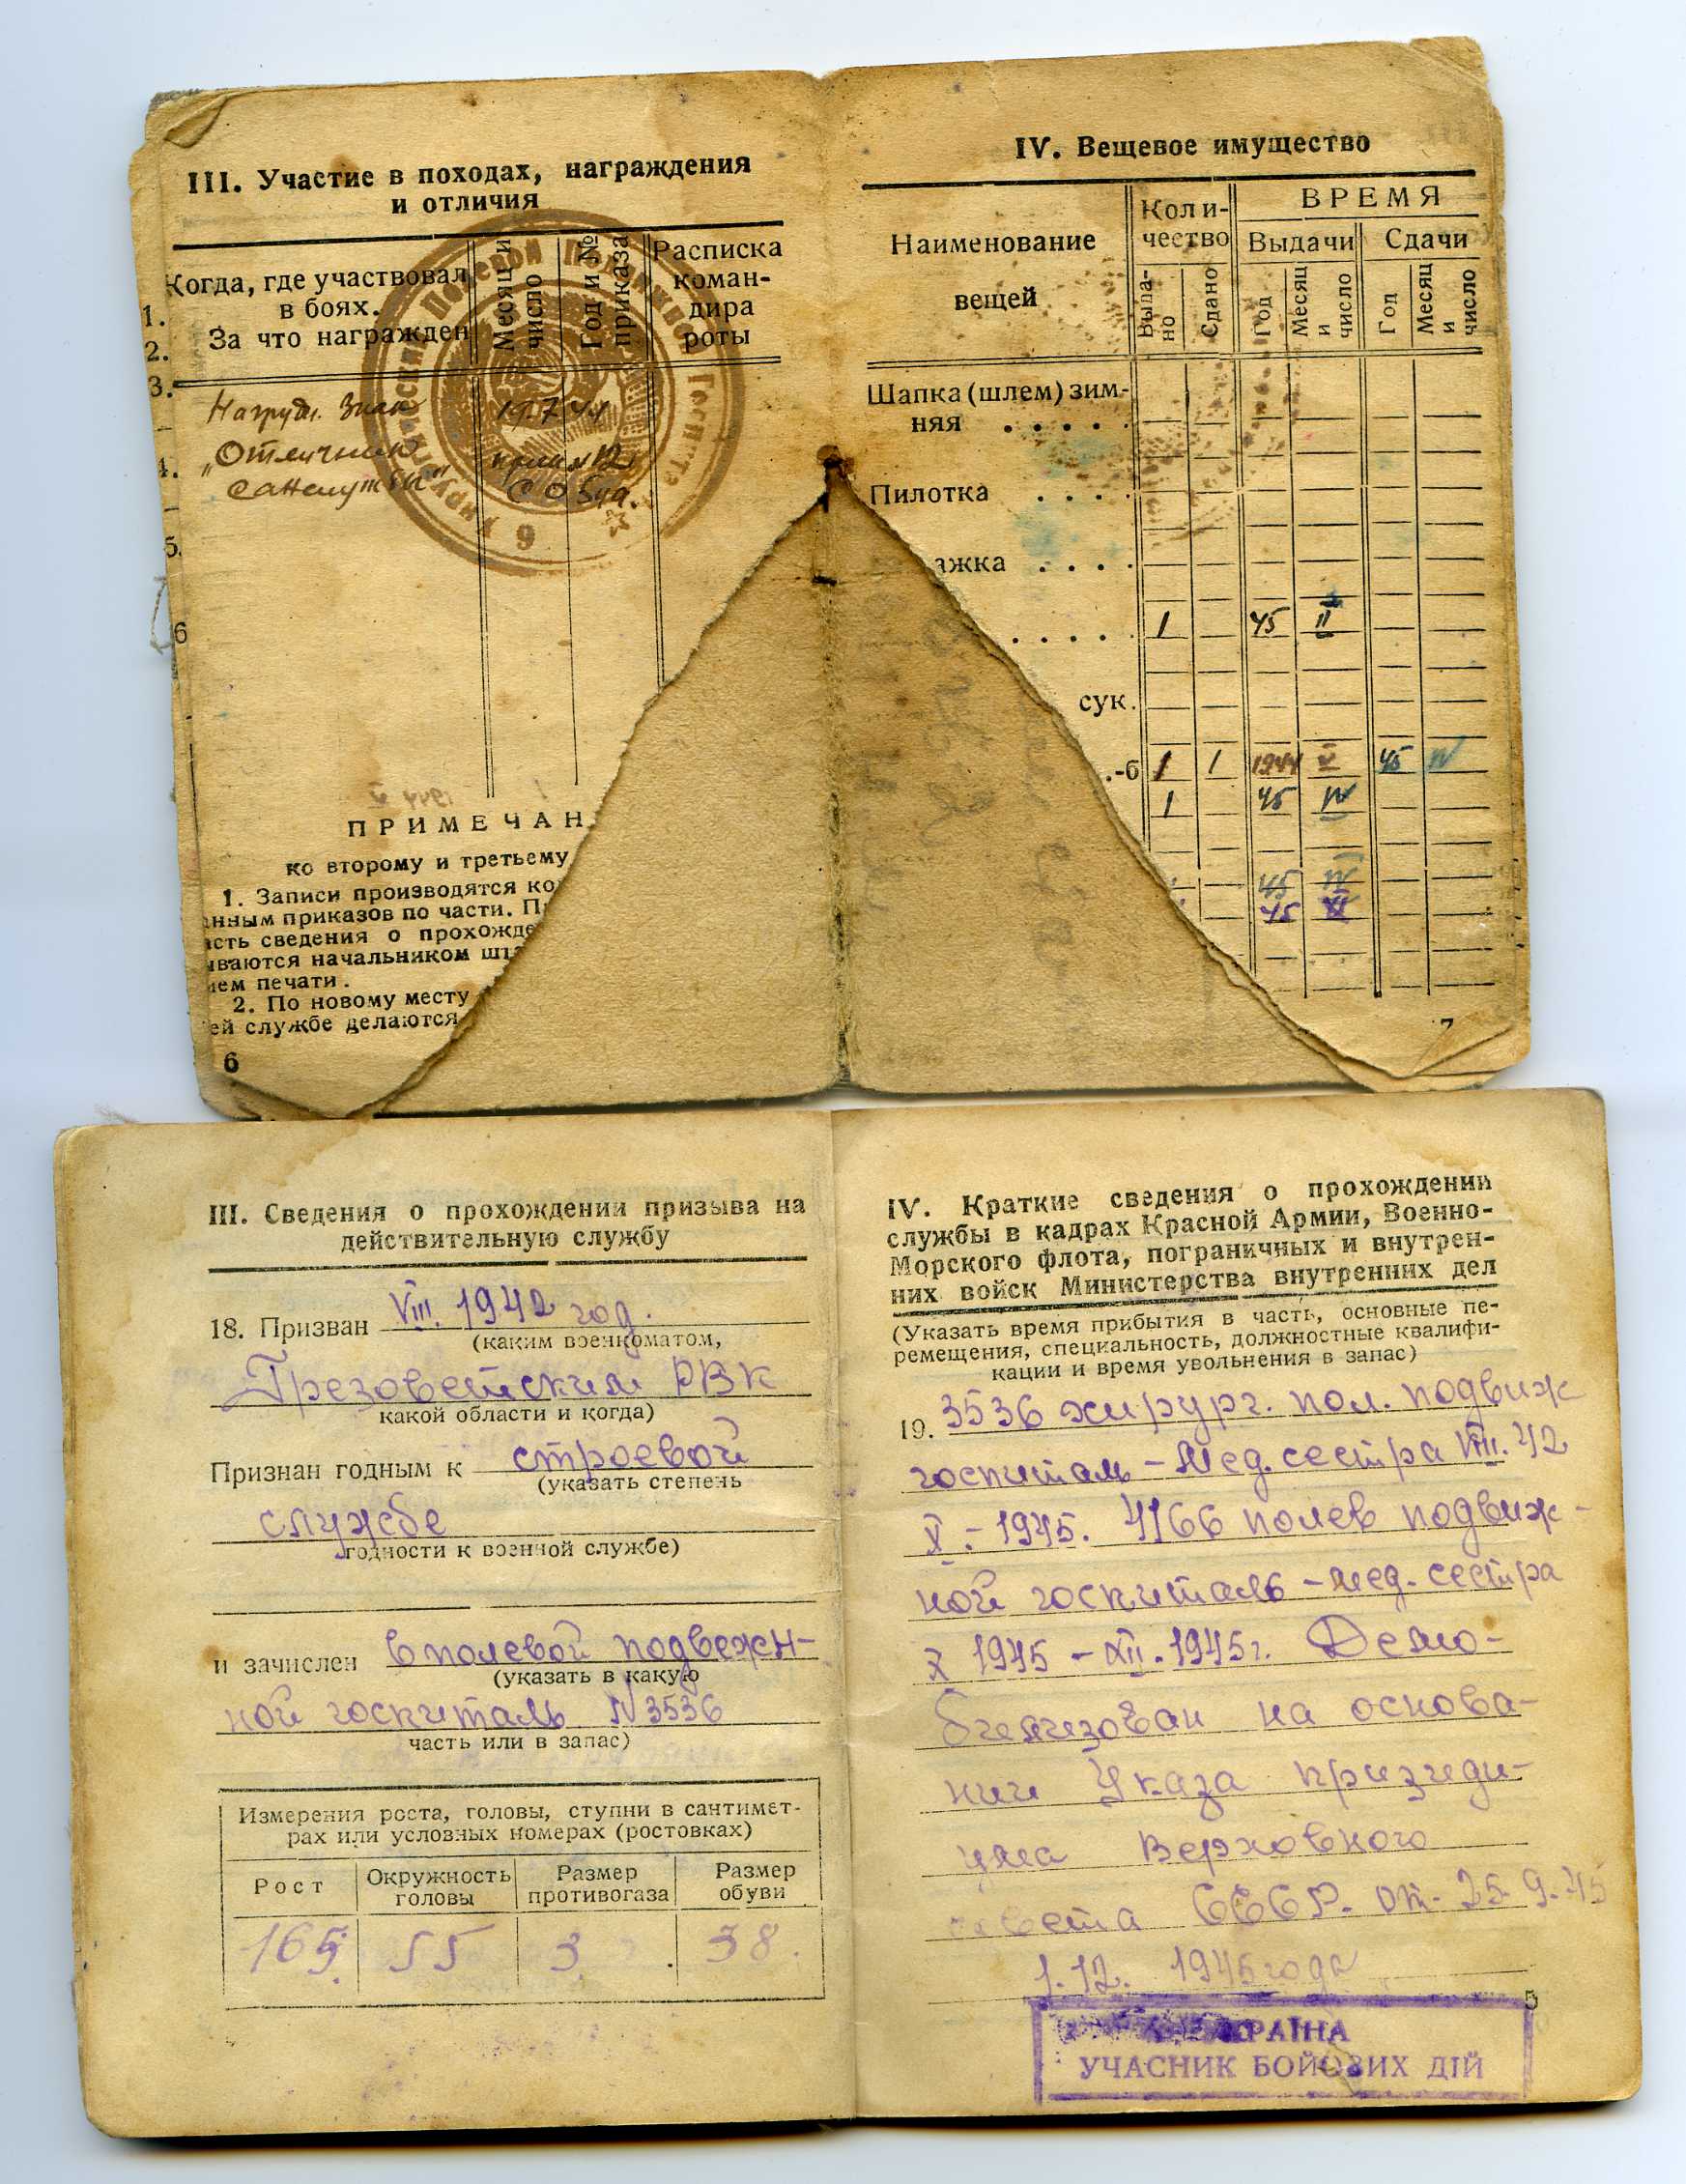 III. Участие в походах, награждения
и отличия
Когда, где участвовал
в боях.
За что награжден
Месяц и
число
Год и №
приказа
Расписка
коман-
дира
роты
1.
2.
3.
4.
5.
6
Нагрудн. Знак
„Отличник
Санслужбы"
19.7 44
С О 5 уд.
6 Хирургический Полевой Подвижной Госпиталь
ПРИМЕЧАН
ко второму и третьему
1. Записи производятся ко
нным приказов по части. П
сть сведения о прохожде
ваются начальником шт
ем печати.
2. По новому месту
ей службе делаются
6
IV. Вещевое имущество
Наименование
вещей
Коли-
чество
ВРЕМЯ
Выдачи
Сдачи
Выда-
но
Сдано
Год
Месяц
и
число
Год
Месяц
и
число
Шапка (шлем) зим-
няя . . . . .
Пилотка . . . .
ажка . . . .
. . . . . 1 45 II
сук.
.-б 1 1 1944 V 45 IV
1 45 IV
45 IV
45 XI
7
III. Сведения о прохождении призыва на
действительную службу
18. Призван VIII. 1942 год.
(каким военкоматом,
Грязоветским РВК
какой области и когда)
Признан годным к строевой
(указать степень
службе
годности к военной службе)
и зачислен в полевой подвежн-
(указать в какую
ной госпиталь №3536
часть или в запас)
Измерения роста, головы, ступни в сантимет-
рах или условных номерах (ростовках)
Рост
Окружность
головы
Размер
противогаза
Размер
обуви
165. 55 3 38.
IV. Краткие сведения о прохождении
службы в кадрах Красной Армии, Военно-
Морского флота, пограничных и внутрен-
них войск Министерства внутренних дел
(Указать время прибытия в часть, основные пе-
ремещения, специальность, должностные квалифи-
кации и время увольнения в запас)
19. 3536 хирург. пол. подвиж
госпиталь – Мед. сестра VIII. 42
X – 1945. 4166 полев подвиж-
ной госпиталь – мед. сестра
X 1945 – XII. 1945г. Демо-
билизован на основа-
нии Указа президи-
ума Верховного
совета СССР. от. 25. 9. 45
1. 12. 1945 года
5
УКРАЇНА
УЧАСНИК БОЙОВИХ ДІЙ